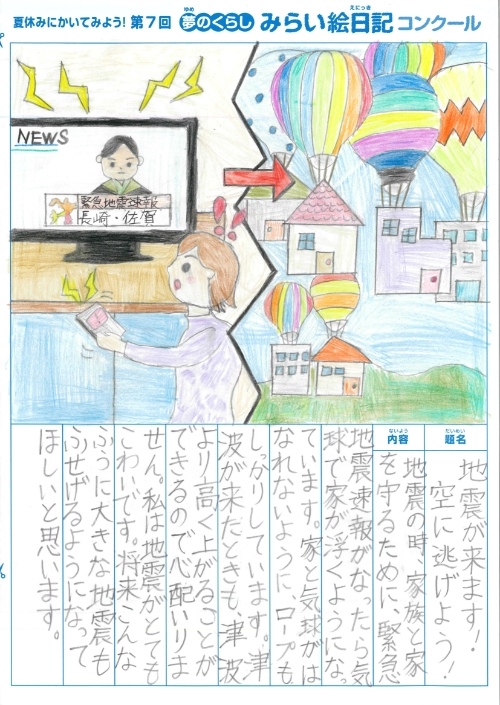 夏休みにかいてみよう！ 第7回 夢のくらし みらい絵日記 コンクール
ゆめ
えにっき
NEWS
緊急地震速報
長崎・佐賀
だいめい
題名
地震が来ます！
空に逃げよう！
ないよう
内容
地震の時、家族と家
を守るために、緊急
地震速報がなったら気
球で家が浮くようになっ
ています。家と気球がは
なれないように、ロープも
しっかりしています。津
波が来たときも、津波
より高く上がることが
できるので心配いりま
せん。私は地震がとても
こわいです。将来こんな
ふうに大きな地震も
ふせげるようになって
ほしいと思います。